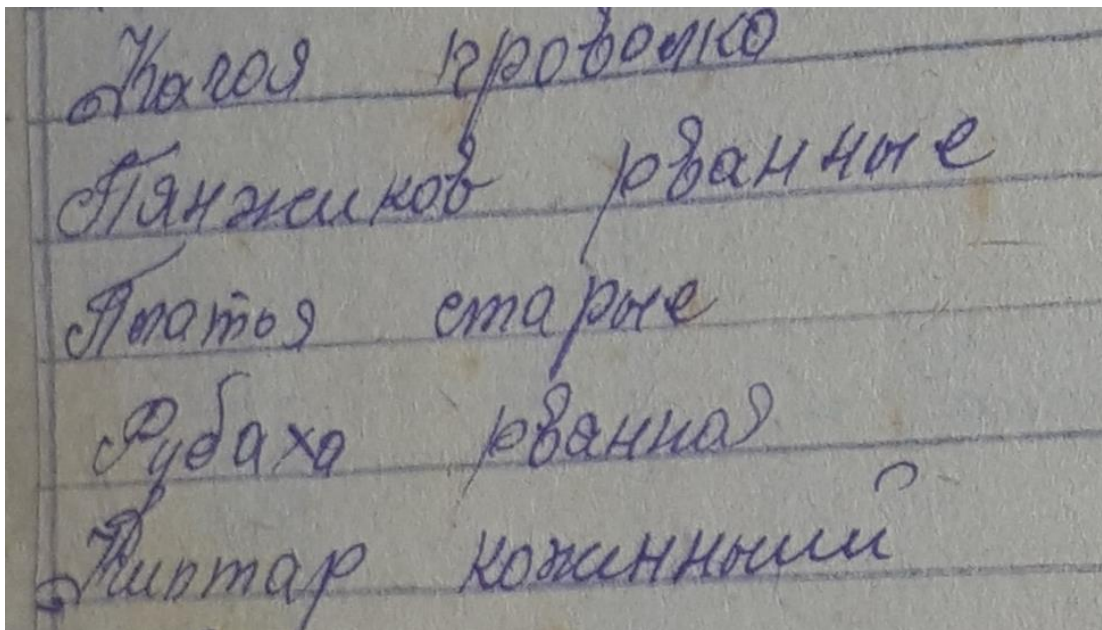 Нагоя проволко
Пянжиков рванные
Платья старые
Рубаха рванная
Киптар кожинный